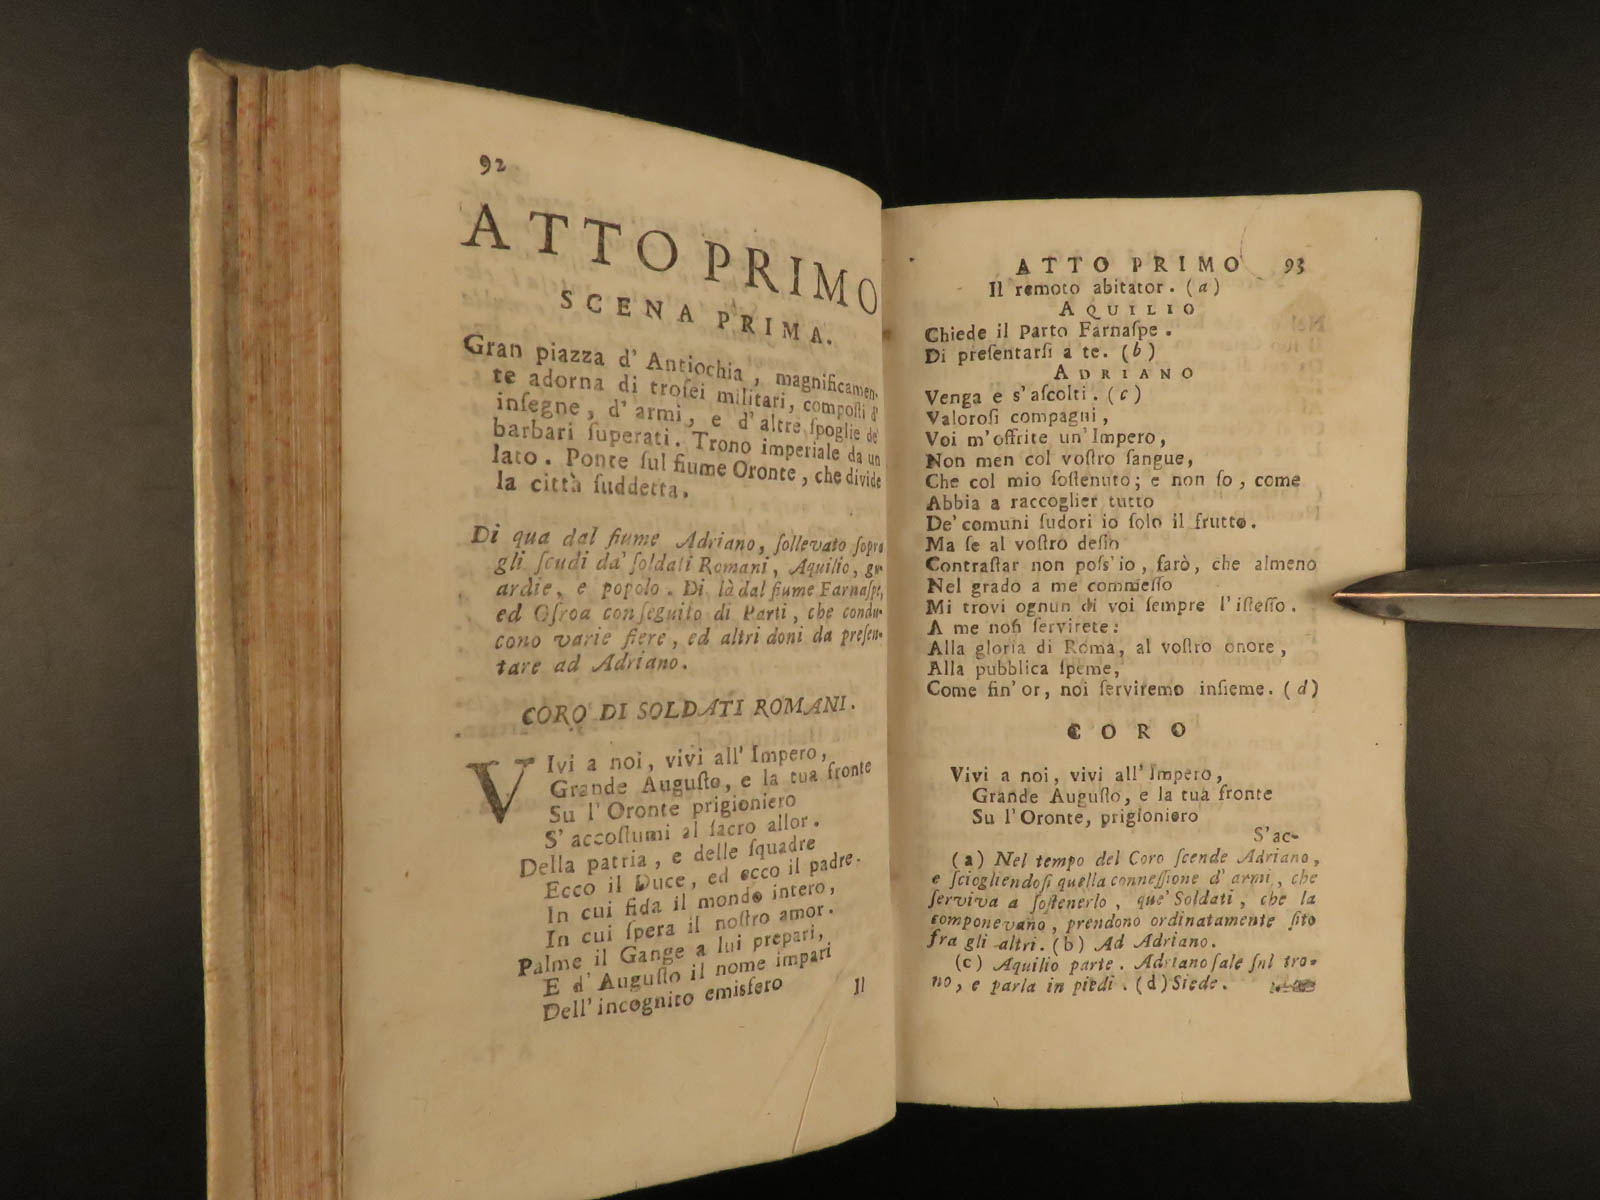 92
ATTO PRIMO
SCENA PRIMA.
Gran piazza d' Antiochia, magnificamen-
te adorna di trofei militari, compoſti d'
inſegne, d' armi, e d' altre ſpoglie de'
barbari ſuperati. Trono imperiale da un
lato. Ponte ſul fiume Oronte, che divide
la città ſuddetta.
Di qua dal fiume Adriano, ſollevato ſopra
gli ſcudi da' ſoldati Romani, Aquilio, gu-
ardie, e popolo. Di là dal fiume Farnaſpe,
ed Oſroa conſeguito di Parti, che condu-
cono varie fiere, ed altri doni da preſen-
tare ad Adriano.
CORO DI SOLDATI ROMANI.
VIvi a noi, vivi all' Impero,
Grande Auguſto, e la tua fronte
Su l' Oronte prigioniero
S' accoſtumi al ſacro allor.
Della patria, e delle ſquadre
Ecco il Duce, ed ecco il padre.
In cui fida il mondo intero,
In cui ſpera il noſtro amor.
Palme il Gange a lui prepari,
E d' Auguſto il nome impari
Dell' incognito emisfero
Il
ATTO PRIMO 93
Il remoto abitator. (a)
AQUILIO
Chiede il Parto Farnaſpe.
Di preſentarſi a te. (b)
ADRIANO
Venga e s' aſcolti. (c)
Valoroſi compagni,
Voi m' offrite un' Impero,
Non men col voſtro ſangue,
Che col mio ſoſtenuto; e non ſo, come
Abbia a raccoglier tutto
De' comuni ſudori io ſolo il frutto.
Ma ſe al voſtro deſio
Contraſtar non poſs' io, farò, che almeno
Nel grado a me commeſſo
Mi trovi ognun di voi ſempre l' iſteſſo.
A me non ſervirete:
Alla gloria di Roma, al voſtro onore,
Alla pubblica ſpeme,
Come fin' or, noi ſerviremo inſieme. (d)
CORO
Vivi a noi, vivi all' Impero,
Grande Auguſto, e la tua fronte
Su l' Oronte, prigioniero
S' ac-
(a) Nel tempo del Coro ſcende Adriano,
e ſciogliendoſi quella conneſſione d' armi, che
ſerviva a ſoſtenerlo, que' Soldati, che la
componevano, prendono ordinatamente ſito
fra gli altri. (b) Ad Adriano.
(c) Aquilio parte. Adriano ſale ſul tro-
no, e parla in piedi. (d) Siede.